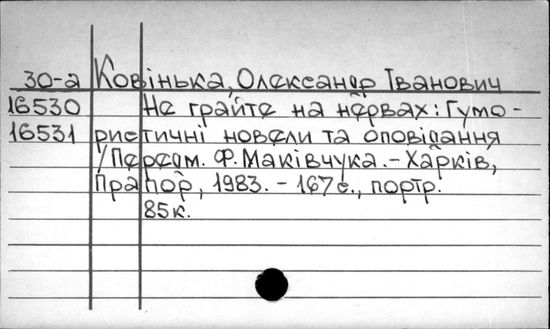 30-а Ковінька, Олександр Іванович
16530 Не грайте на нервах: Гумо-
16531 ристичні новели та оповідання
/Передм. Ф. Маківчука. - Харків,
Прапор, 1983. - 167 с., портр.
85к.